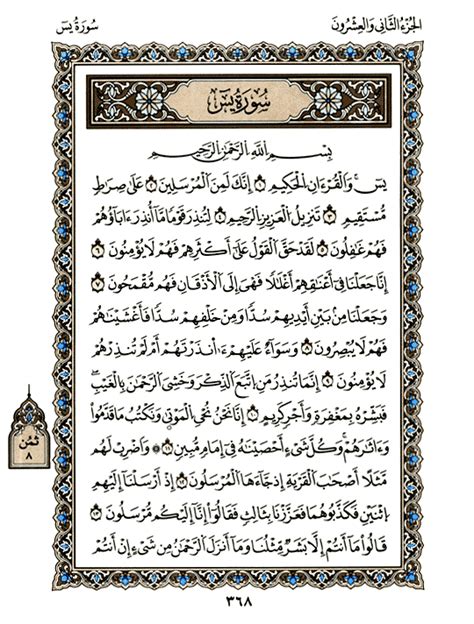 الجزء الثاني والعشرون
سورة يس
سورة يس
بسم الله الرحمن الرحيم
يس والقرءان الحكيم ١ إنك لمن المرسلين ٢ على صراط
مستقيم ٣ تنزيل العزيز الرحيم ٤ لتنذر قوما ما أنذر ءاباؤهم
فهم غافلون ٥ لقد حق القول على أكثرهم فهم لا يومنون ٦
إنا جعلنا في أعناقهم أغلالا فهي إلى الأذقان فهم مقمحون ٧
وجعلنا من بين أيديهم سدا ومن خلفهم سدا فأغشيناهم
فهم لا يبصرون ٨ وسواء عليهم ءأنذرتهم أم لم تنذرهم
لا يومنون ٩ إنما تنذر من اتبع الذكر وخشي الرحمن بالغيب
فبشره بمغفرة وأجر كريم ١٠ إنا نحن نحي الموتى ونكتب ما قدموا
وءاثارهم وكل شيء أحصيناه في إمام مبين ١١ ۞ واضرب لهم
مثلا أصحاب القرية إذ جاءها المرسلون ١٢ إذ أرسلنا إليهم
اثنين فكذبوهما فعززنا بثالث فقالوا إنا إليكم مرسلون ١٣
قالوا ما أنتم إلا بشر مثلنا وما أنزل الرحمن من شيء إن أنتم
ثمن
٨
٣٦٨